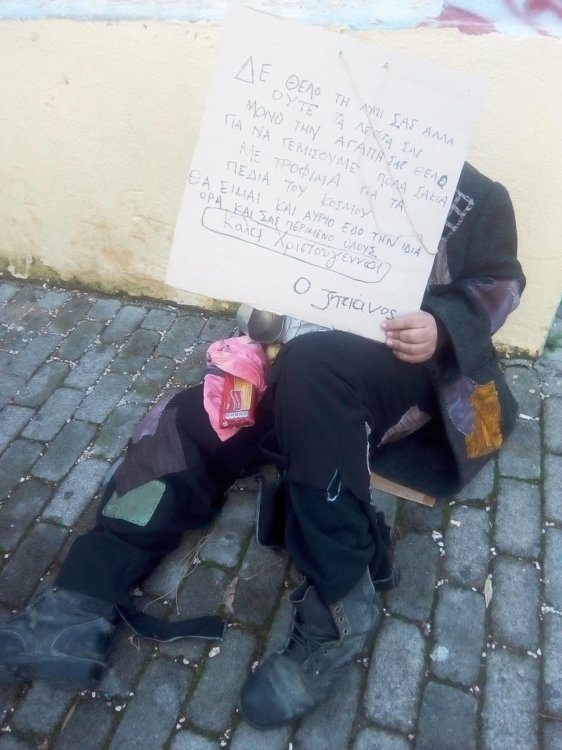 ΔΕ ΘΕΛΟ ΤΗ ΛΥΠΙ ΣΑΣ ΑΛΛΑ
ΟΥΤΕ ΤΑ ΛΕΥΤΑ ΣΑΣ
ΜΟΝΟ ΤΗΝ ΑΓΑΠΗ ΣΑΣ ΘΕΛΟ
ΓΙΑ ΝΑ ΓΕΜΙΣΟΥΜΕ ΠΟΛΑ ΣΑΚΙΑ
ΜΕ ΤΡΟΦΙΜΑ ΓΙΑ ΤΑ
ΠΕΔΙΑ ΤΟΥ ΚΟΣΜΟΥ
ΘΑ ΕΙΜΑΙ ΚΑΙ ΑΥΡΙΟ ΕΔΟ ΤΗΝ ΙΔΙΑ
ΟΡΑ ΚΑΙ ΣΑΣ ΠΕΡΙΜΕΝΟ ΟΛΟΥΣ
Καλά Χριστούγεννα
Ο Ζητιάνος